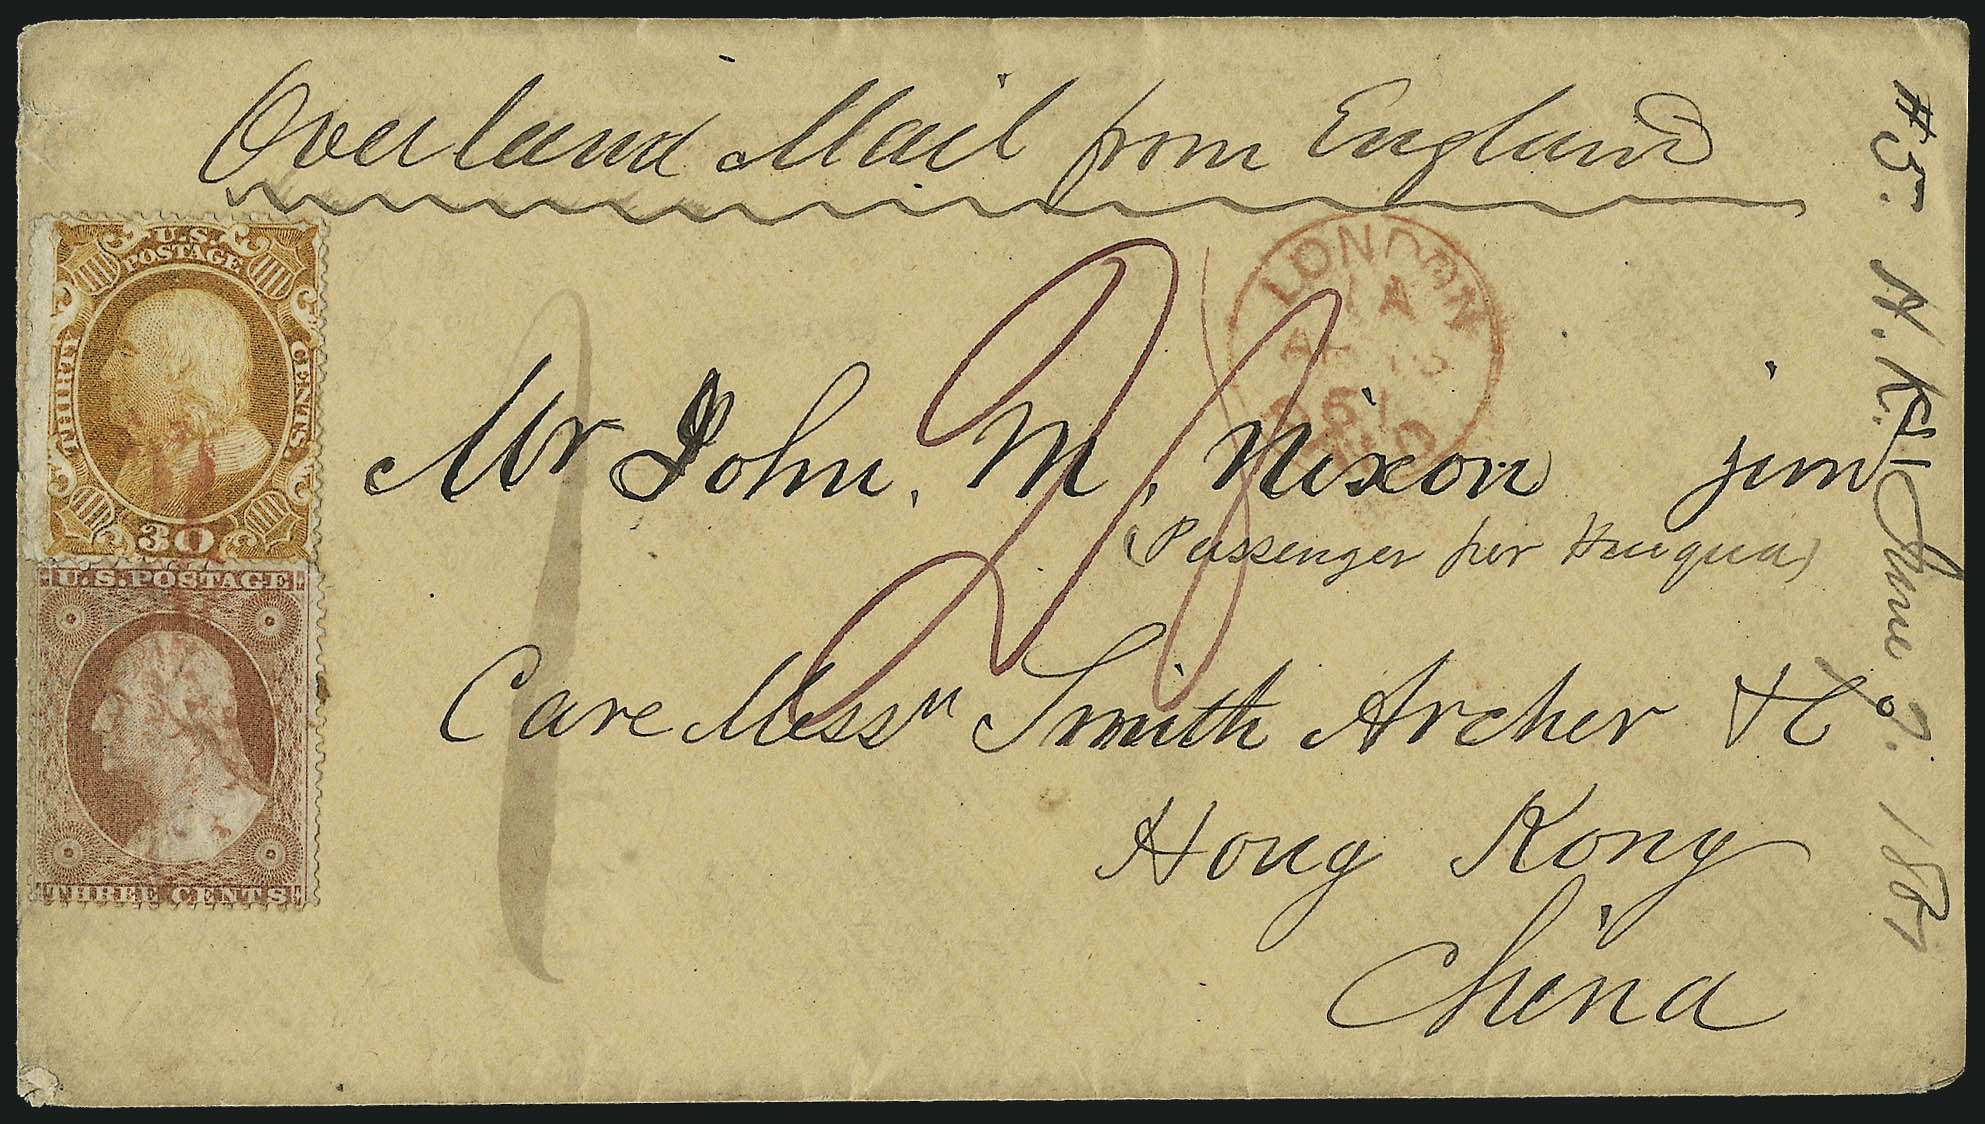 Overland Mail from England
U.S.
POSTAGE
THIRTY
CENTS
30
U.S. POSTAGE
THREE CENTS
LONDON
A
61
PAID
Mr John. M. Nixon jun
(Passenger per Houqua)
Care Messrs Smith Archer & Co
Hong Kong
China
#5. H.K. June 7. 1861